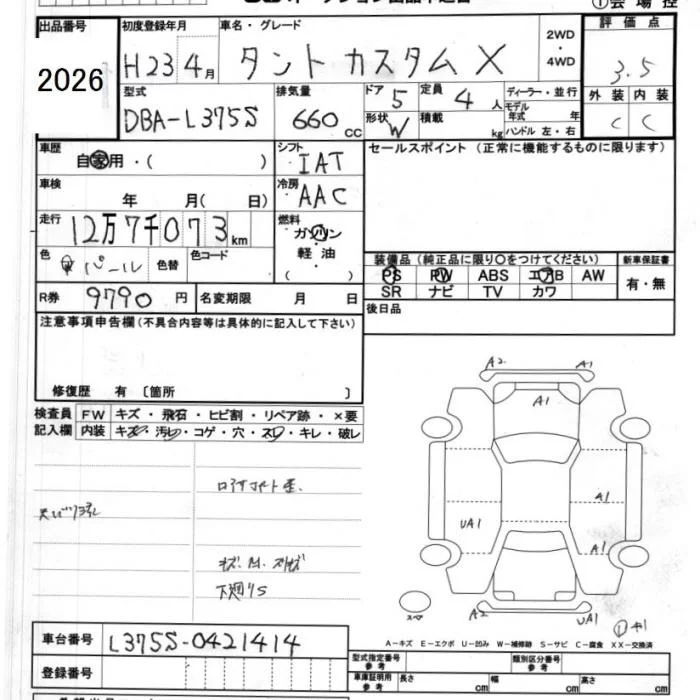 出品番号 初度登録年月 車名・グレード 2WD・4WD 評価点
2026 H23 4月 タント カスタム X 3.5
型式 排気量 ドア 5 定員 4人 ディーラー・並行 外装 内装
DBA-L375S 660cc 形状 W 積載 kg モデル年式 年 C C
ハンドル 左・右
車歴 自家用・( ) シフト IAT セールスポイント (正常に機能するものに限ります)
車検 年 月( 日) 冷房 AAC
走行 12万7千073km 燃料 ガソリン
軽油
( )
色 パール 色替 色コード 装備品 (純正品に限り○をつけてください) 新車保証書
PS PW ABS エアB AW 有・無
R券 9790円 名変期限 月 日 SR ナビ TV カワ
後日品
注意事項申告欄 (不具合内容等は具体的に記入して下さい)
修復歴 有 〔箇所 〕
検査員 FW キズ・飛石・ヒビ割・リペア跡・×要
記入欄 内装 キズ・汚レ・コゲ・穴・スレ・キレ・破レ
A2 A1
A1
A1
UA1
A1
下廻りS
スペア
A2 UA1
A-キズ E-エクボ U-凹み W-補修跡 S-サビ C-腐食 XX-交換済
車台番号 L375S-0421414
型式指定番号 参考 類別区分番号 参考
登録番号 車庫証明用 参考 長さ cm 幅 cm 高さ cm